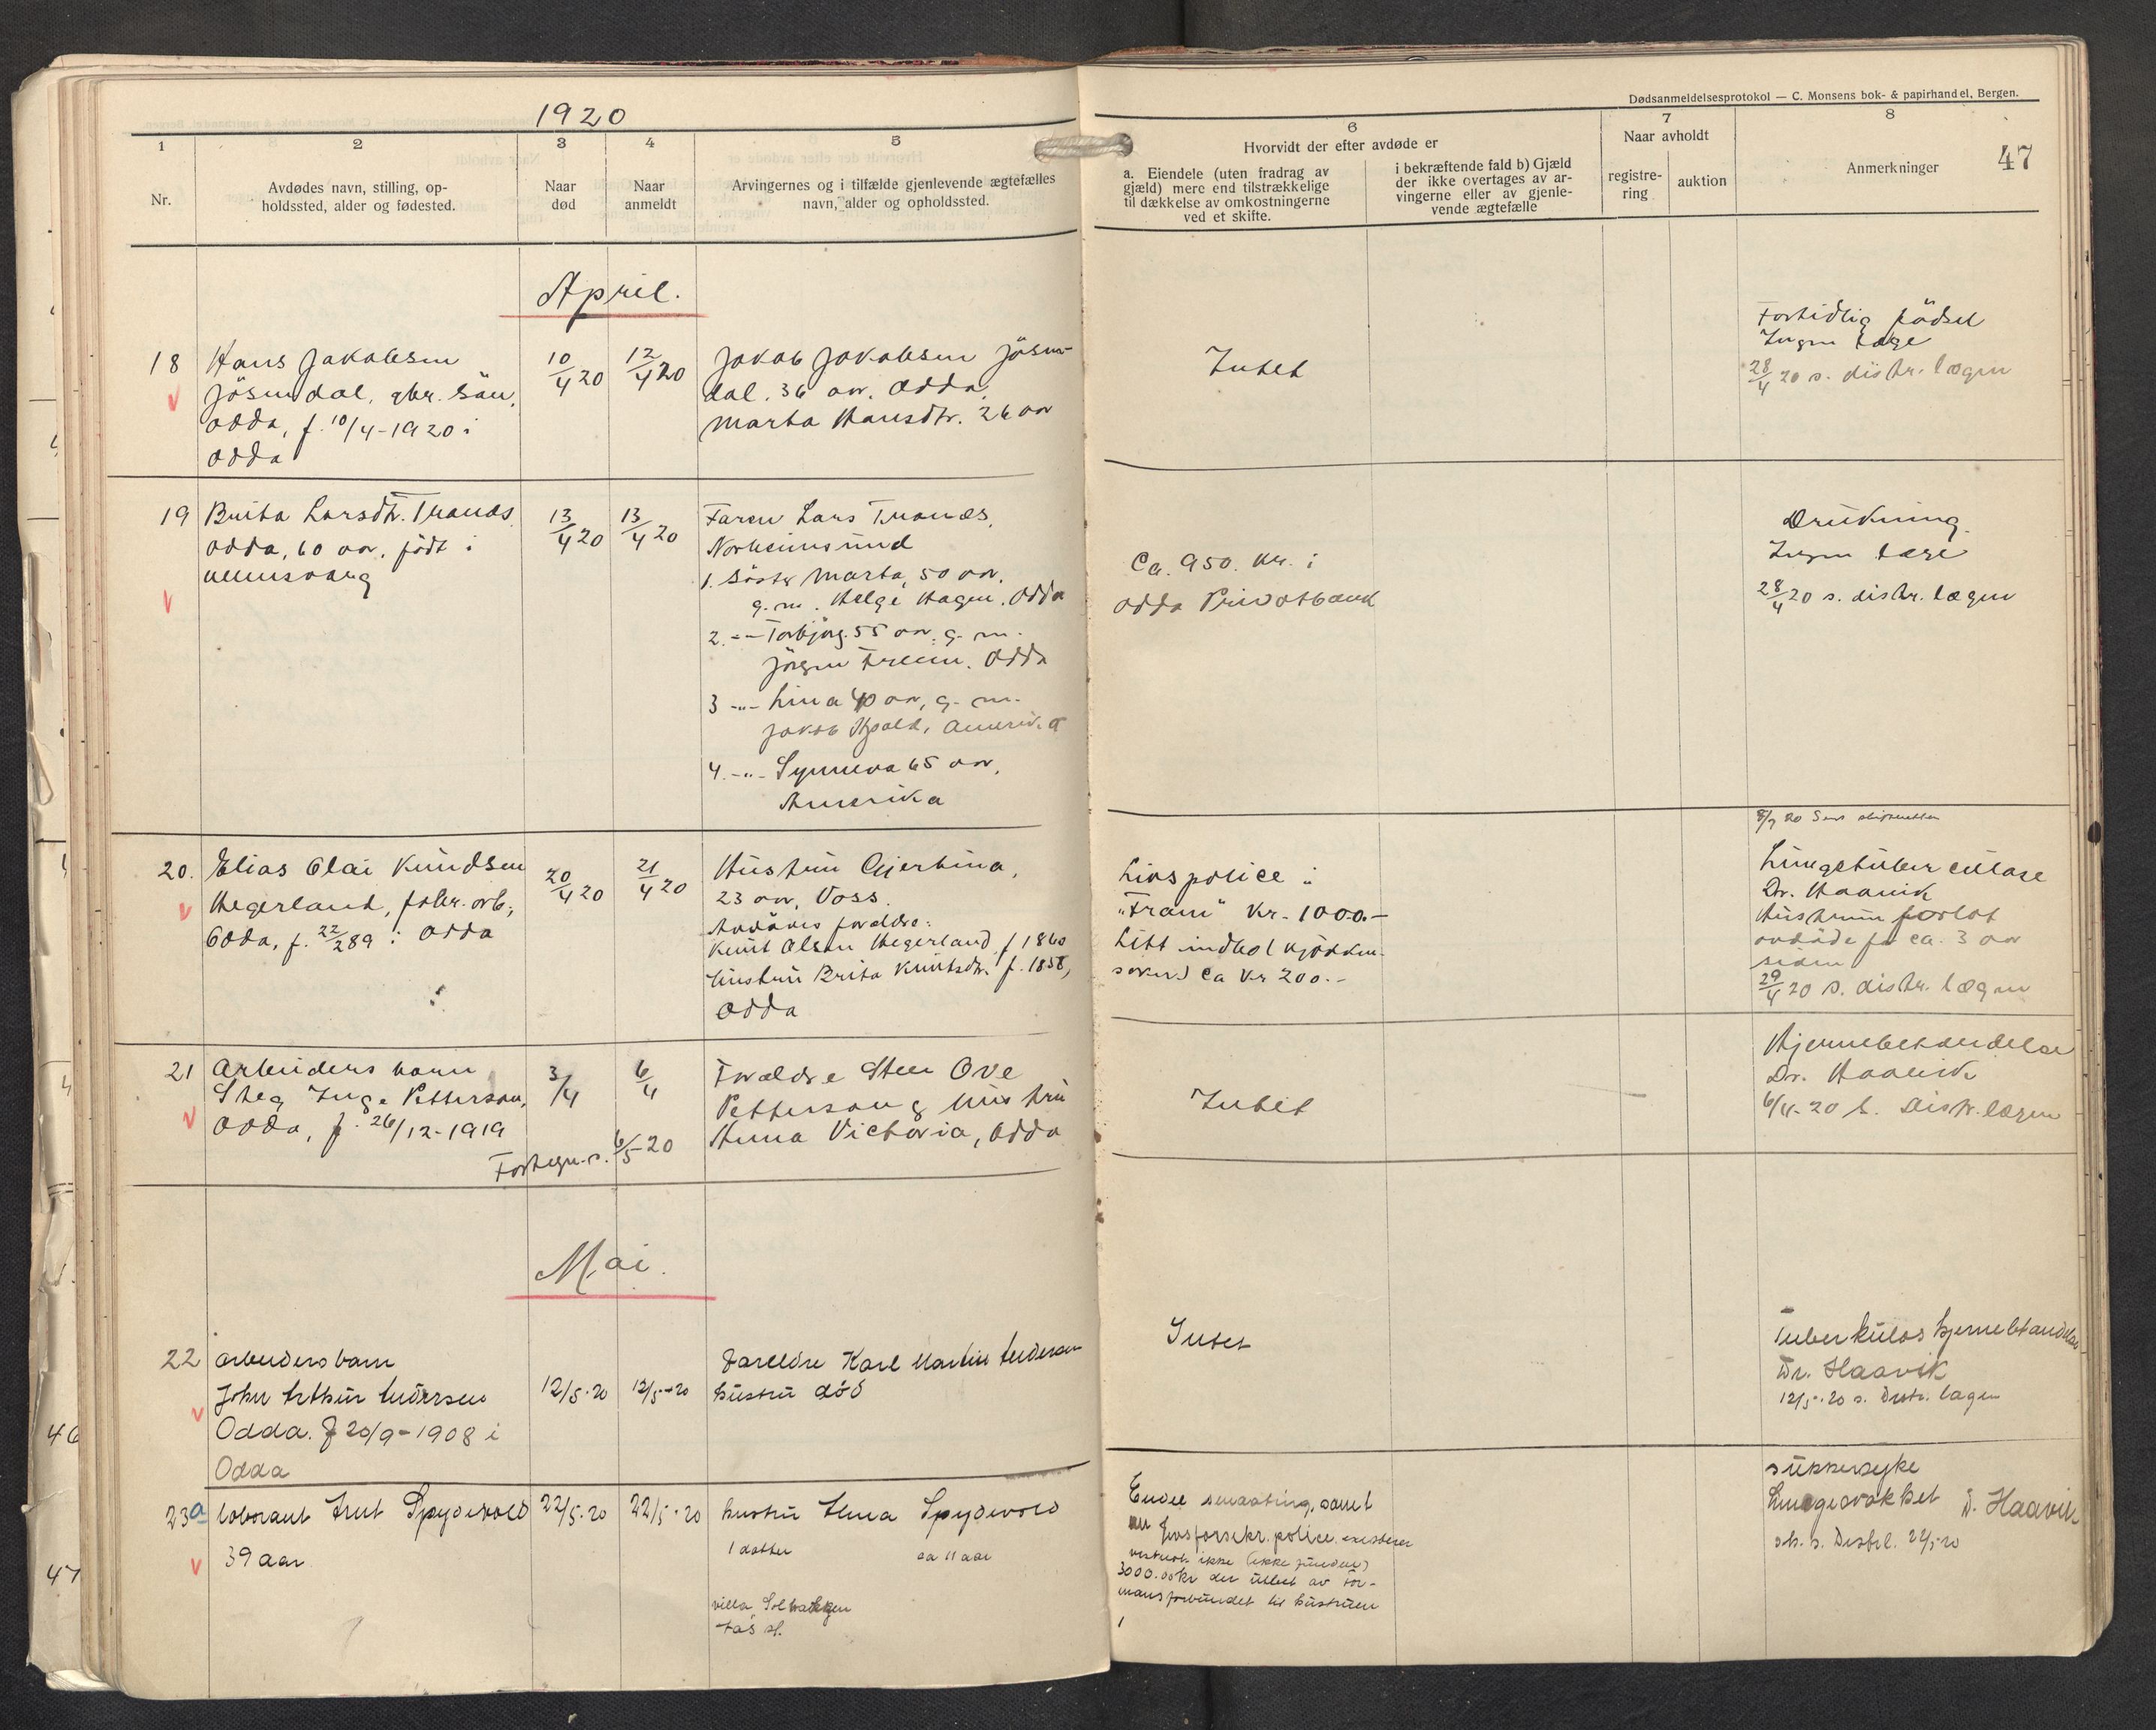 1920
Dødsanmeldelsesprotokol — C. Monsens bok- & papirhandel, Bergen.
47
1
2
3
4
5
6
7
8
Nr.
Avdødes navn, stilling, op-
holdssted, alder og fødested.
Naar
død
Naar
anmeldt
Arvingernes og i tilfælde gjenlevende ægtefælles
navn, alder og opholdssted.
Hvorvidt der efter avdøde er
a. Eiendele (uten fradrag av
gjæld) mere end tilstrækkelige
til dækkelse av omkostningerne
ved et skifte.
i bekræftende fald b) Gjæld
der ikke overtages av ar-
vingerne eller av gjenle-
vende ægtefælle
Naar avholdt
registre-
ring
auktion
Anmerkninger
April.
18
Hans Jakobsen
Jösendal, gbr. sön,
Odda, f. 10/4-1920 i
Odda
10/4 20
12/4 20
Jakob Jakobsen Jösen-
dal, 36 aar, Odda,
Marta Hansdtr. 26 aar
Intet
Fortidlig födsel
Ingen læge
28/4 20 s. distr. lægen
19
Brita Larsdtr. Tranæs,
Odda, 60 aar, födt i
13/4 20
13/4 20
Faren Lars Tranæs,
Norheimsund
1. Söster Marta, 50 aar,
g. m. Helge Hagen, Odda
2. -"- Torbjörg 55 aar, g. m.
Jörgen Odda
3 -"- Lina 40 aar, g. m.
Jakob Amerika
4. -"- Synneva 65 aar,
Amerika
Ca. 950. kr. i
Odda Privatbank
Drukning.
Ingen læge
28/4 20 s. distr. lægen
8/7 20 Sent skifteretten
20.
Elias Olai Knudsen
Hegerland, fabr. arb.,
Odda, f. 22/2 89 i Odda
20/4 20
21/4 20
Hustru Gjertina,
23 aar, Voss.
Avdödes forældre:
Knut Olsen Hegerland f 1860
Hustru Brita Knutsdtr. f. 1858,
Odda
Livspolice i
"Fram" Kr. 1000.-
Litt indbo (kjökken-
saker) Ca Kr 200.-
Lungetuberculose
Dr. Haavik
Hustruen forlot
avdöde for ca. 3 aar
siden
29/4 20 s. distr. lægen
21
Arbeiders barn
Steg Inge Petterson,
Odda, f. 26/12-1919
3/4
6/4
Fortegn. s. 6/5-20
Forældre Sten Ove
Petterson & hustru
Anna Victoria, Odda
Intet
Hjernebetændelse
Dr. Haavik
6/4-20 s. Distr. lægen
Mai.
22
arbeiders barn
John Arthur Andersen
Odda. f 20/9-1908 i
Odda
12/5-20
12/5-20
Foreldre Karl Martin Andersen
hustru död
Intet
Tuberkulos hjernebetændelse
Dr. Haavik
12/5-20 s. Distr. lægen
23a
laborant Spydevold
39 aar
22/5-20
22/5-20
hustru Spydevold
1 datter ca 11 aar
villa
Endel smaating, samt
en livsforsikr. police
ikke (ikke funden)
3000.00 kr den utbet av For-
mansforbundet til hustruen
sukkersyke
Dr. Haavik
s. Distrl.